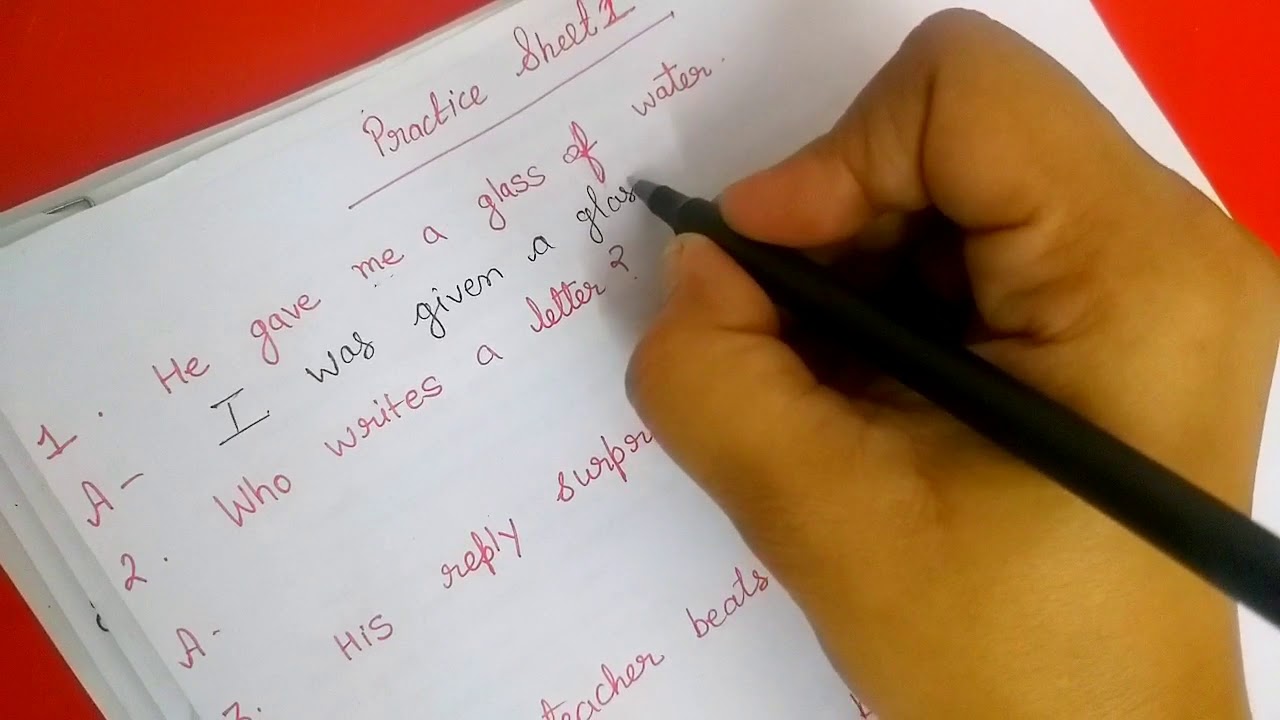 Practice Sheet 1
1. He gave me a glass of water.
A- I was given a glas
2. Who writes a letter?
A-
3. His reply
teacher beats